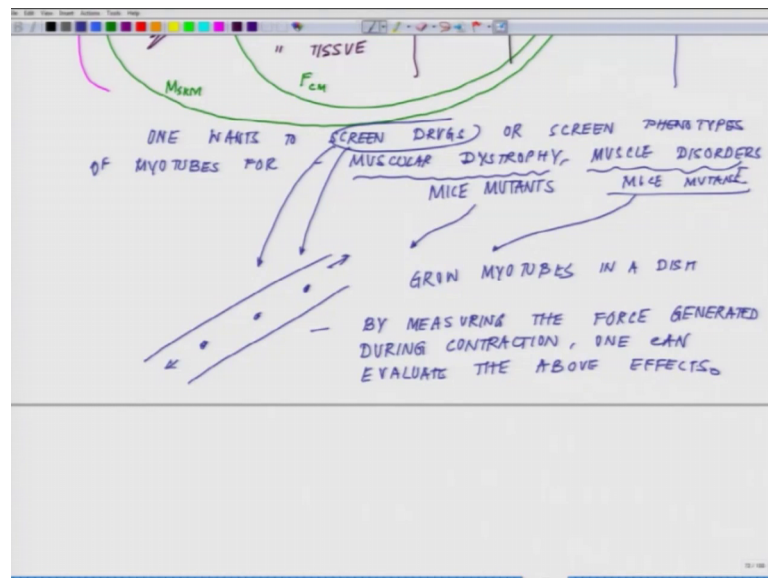 " TISSUE
MSKM
FCM
ONE WANTS TO SCREEN DRUGS OR SCREEN PHENOTYPES
OF MYOTUBES FOR - MUSCULAR DYSTROPHY, MUSCLE DISORDERS
MICE MUTANTS MICE MUTANT
GROW MYOTUBES IN A DISH
— BY MEASURING THE FORCE GENERATED
DURING CONTRACTION, ONE CAN
EVALUATE THE ABOVE EFFECTS.